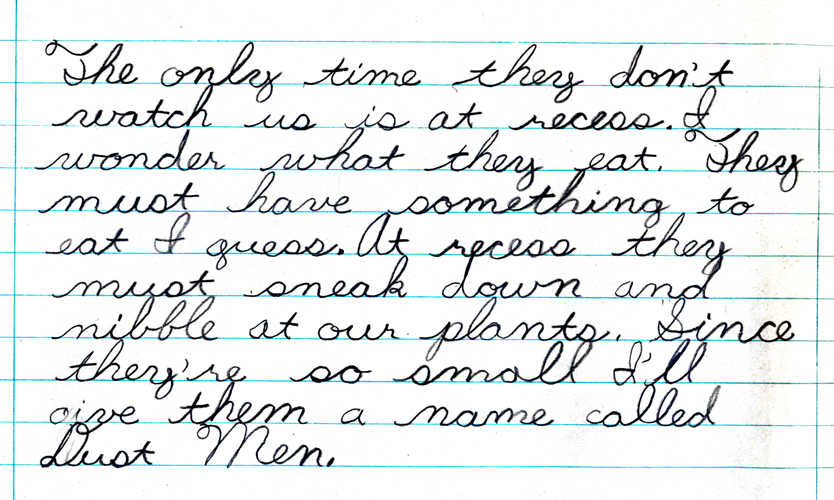 The only time they don't
watch us is at recess. I
wonder what they eat. They
must have something to
eat I guess. At recess they
must sneak down and
nibble at our plants. Since
they're so small I'll
give them a name called
Dust Men.